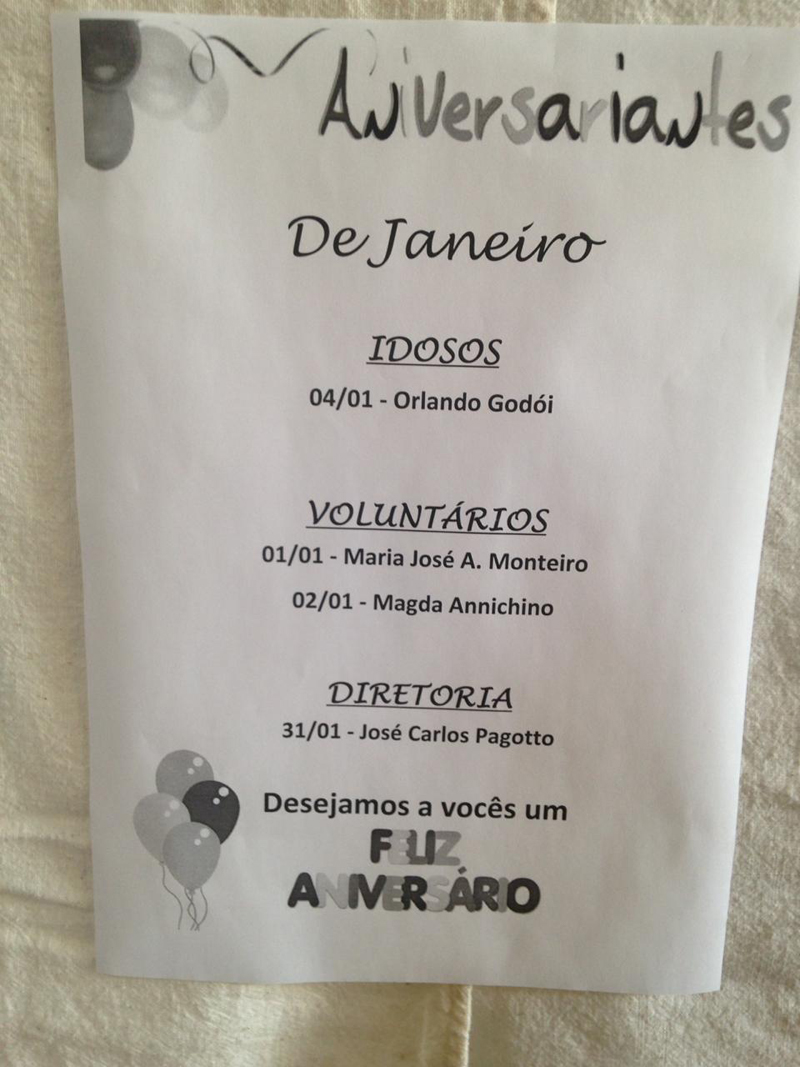 Aniversariantes
De Janeiro
IDOSOS
04/01 - Orlando Godói
VOLUNTÁRIOS
01/01 - Maria José A. Monteiro
02/01 - Magda Annichino
DIRETORIA
31/01 - José Carlos Pagotto
Desejamos a vocês um
FELIZ
ANIVERSÁRIO